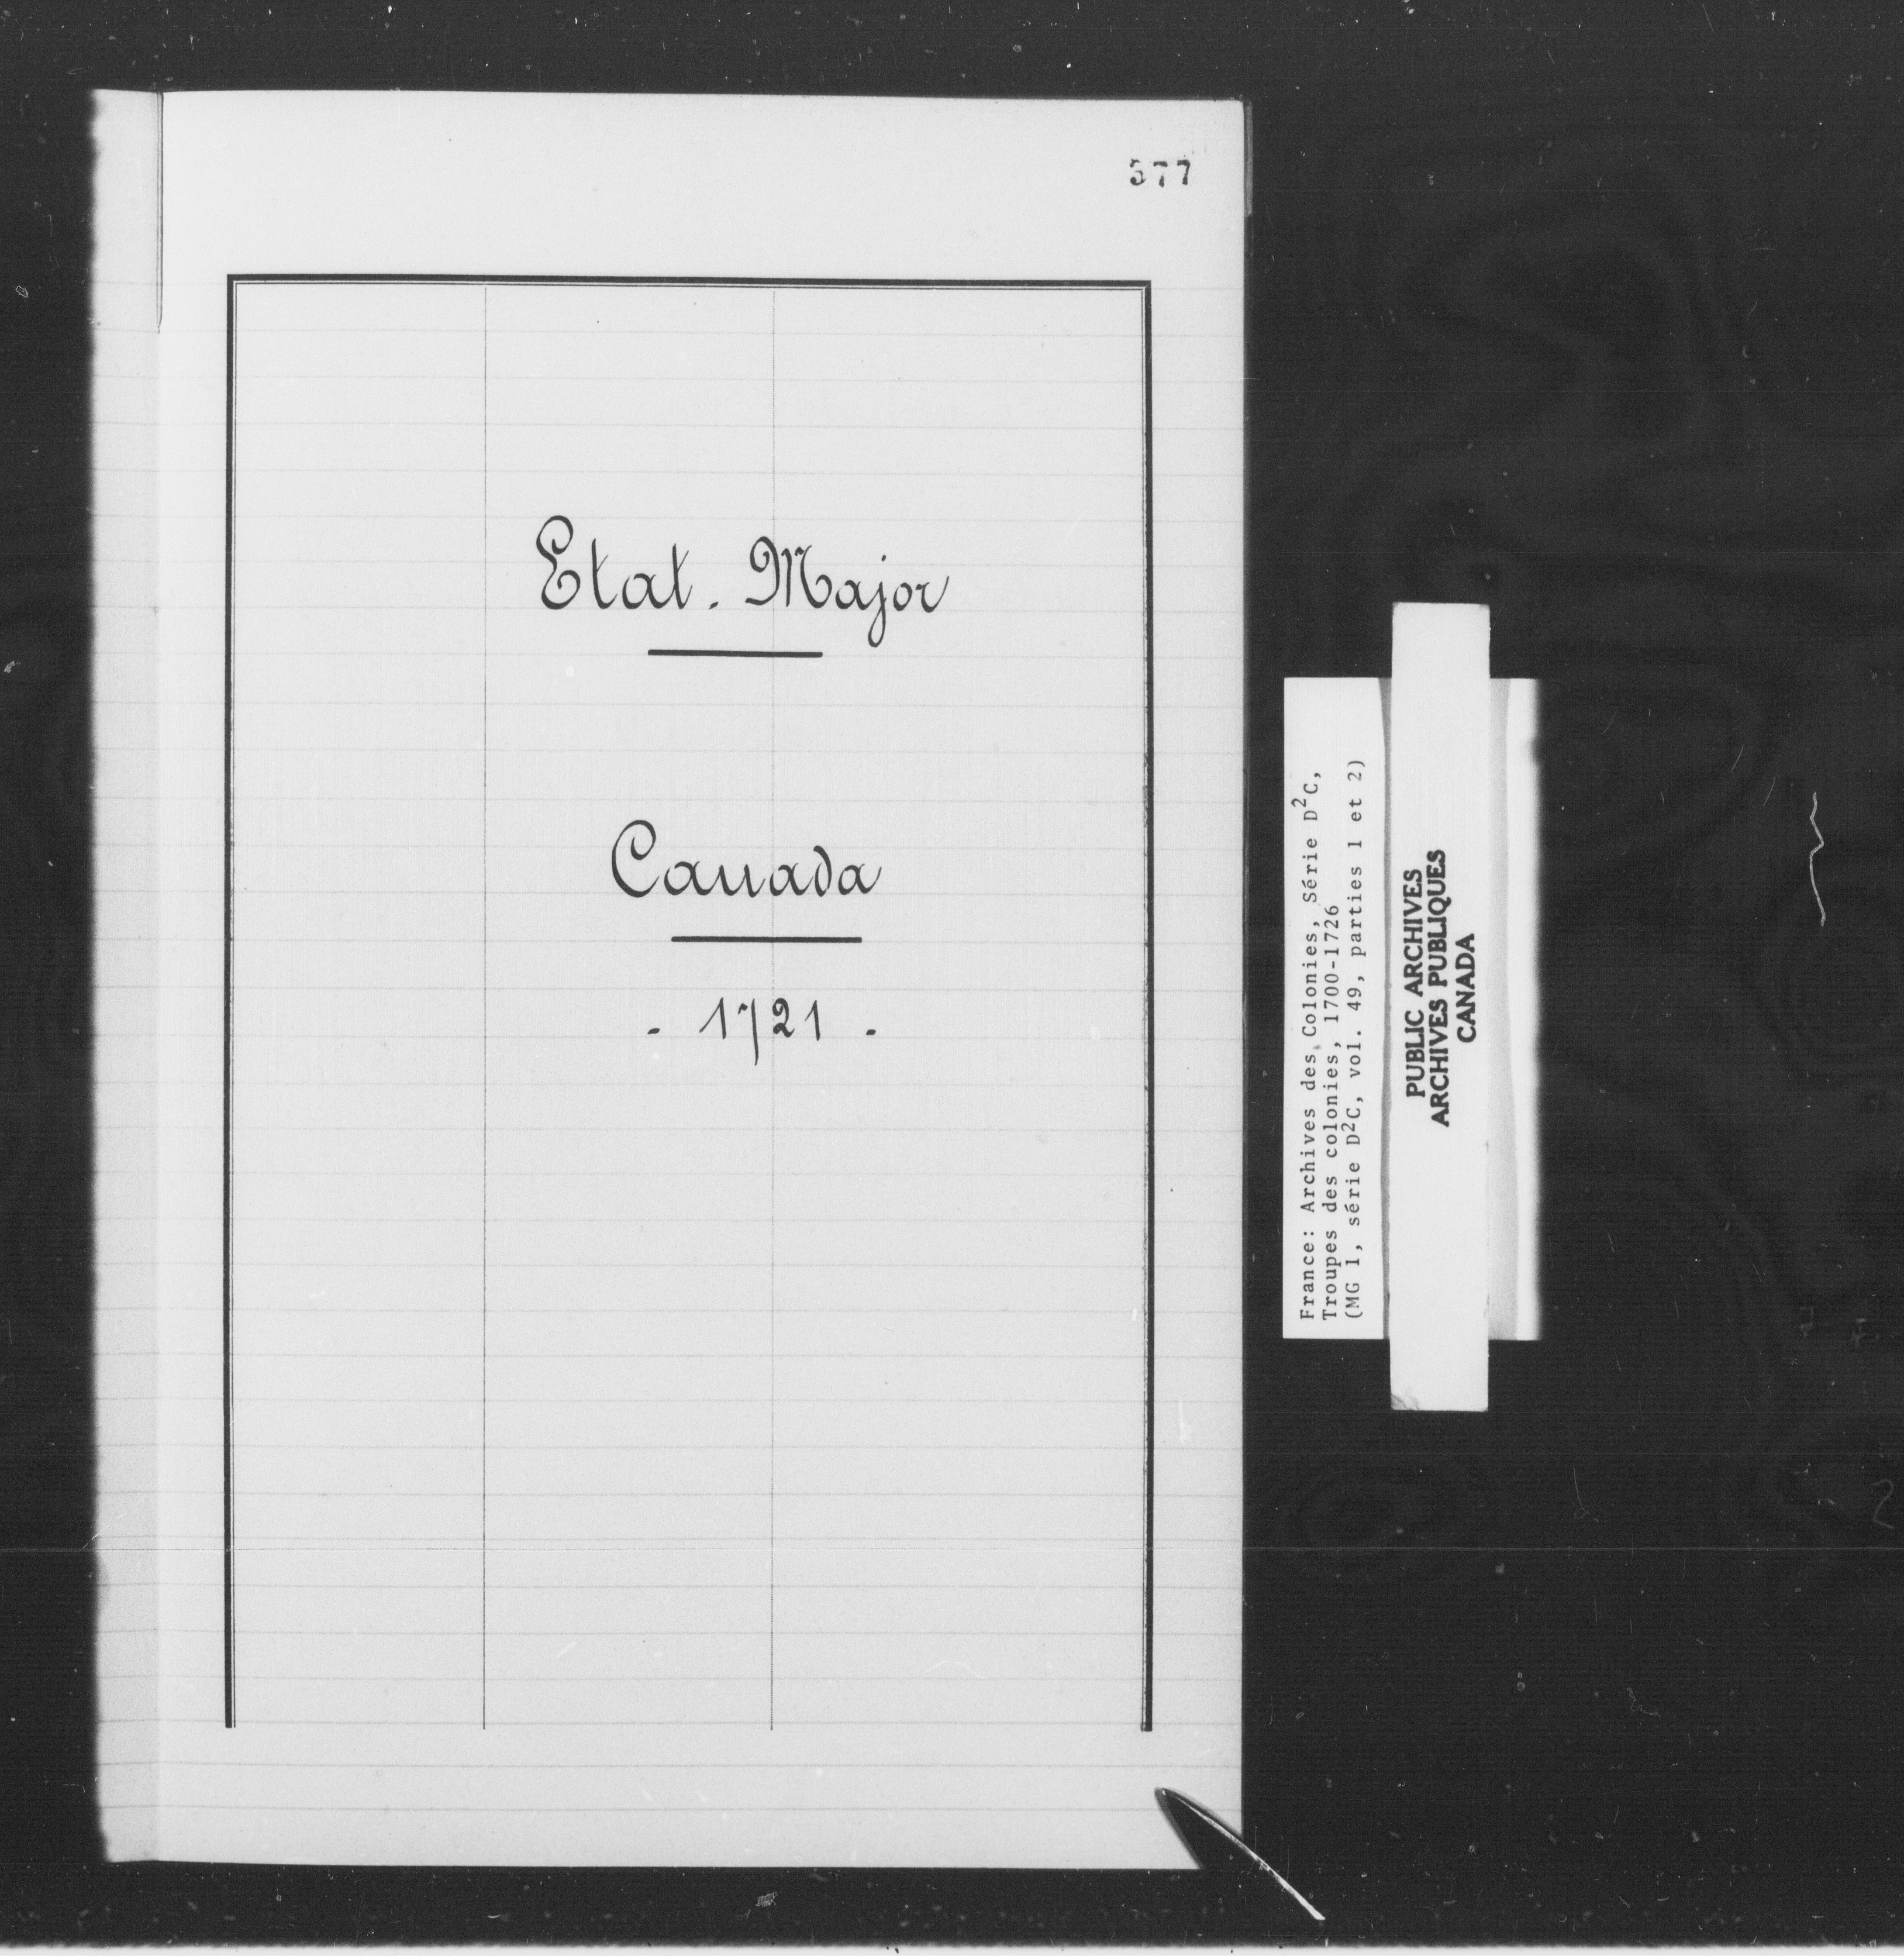 377
Etat. Major
Canada
- 1721 -
France: Archives des Colonies, Série D²C,
Troupes des colonies, 1700-1726
(MG 1, série D²C, vol. 49, parties 1 et 2)
PUBLIC ARCHIVES
ARCHIVES PUBLIQUES
CANADA